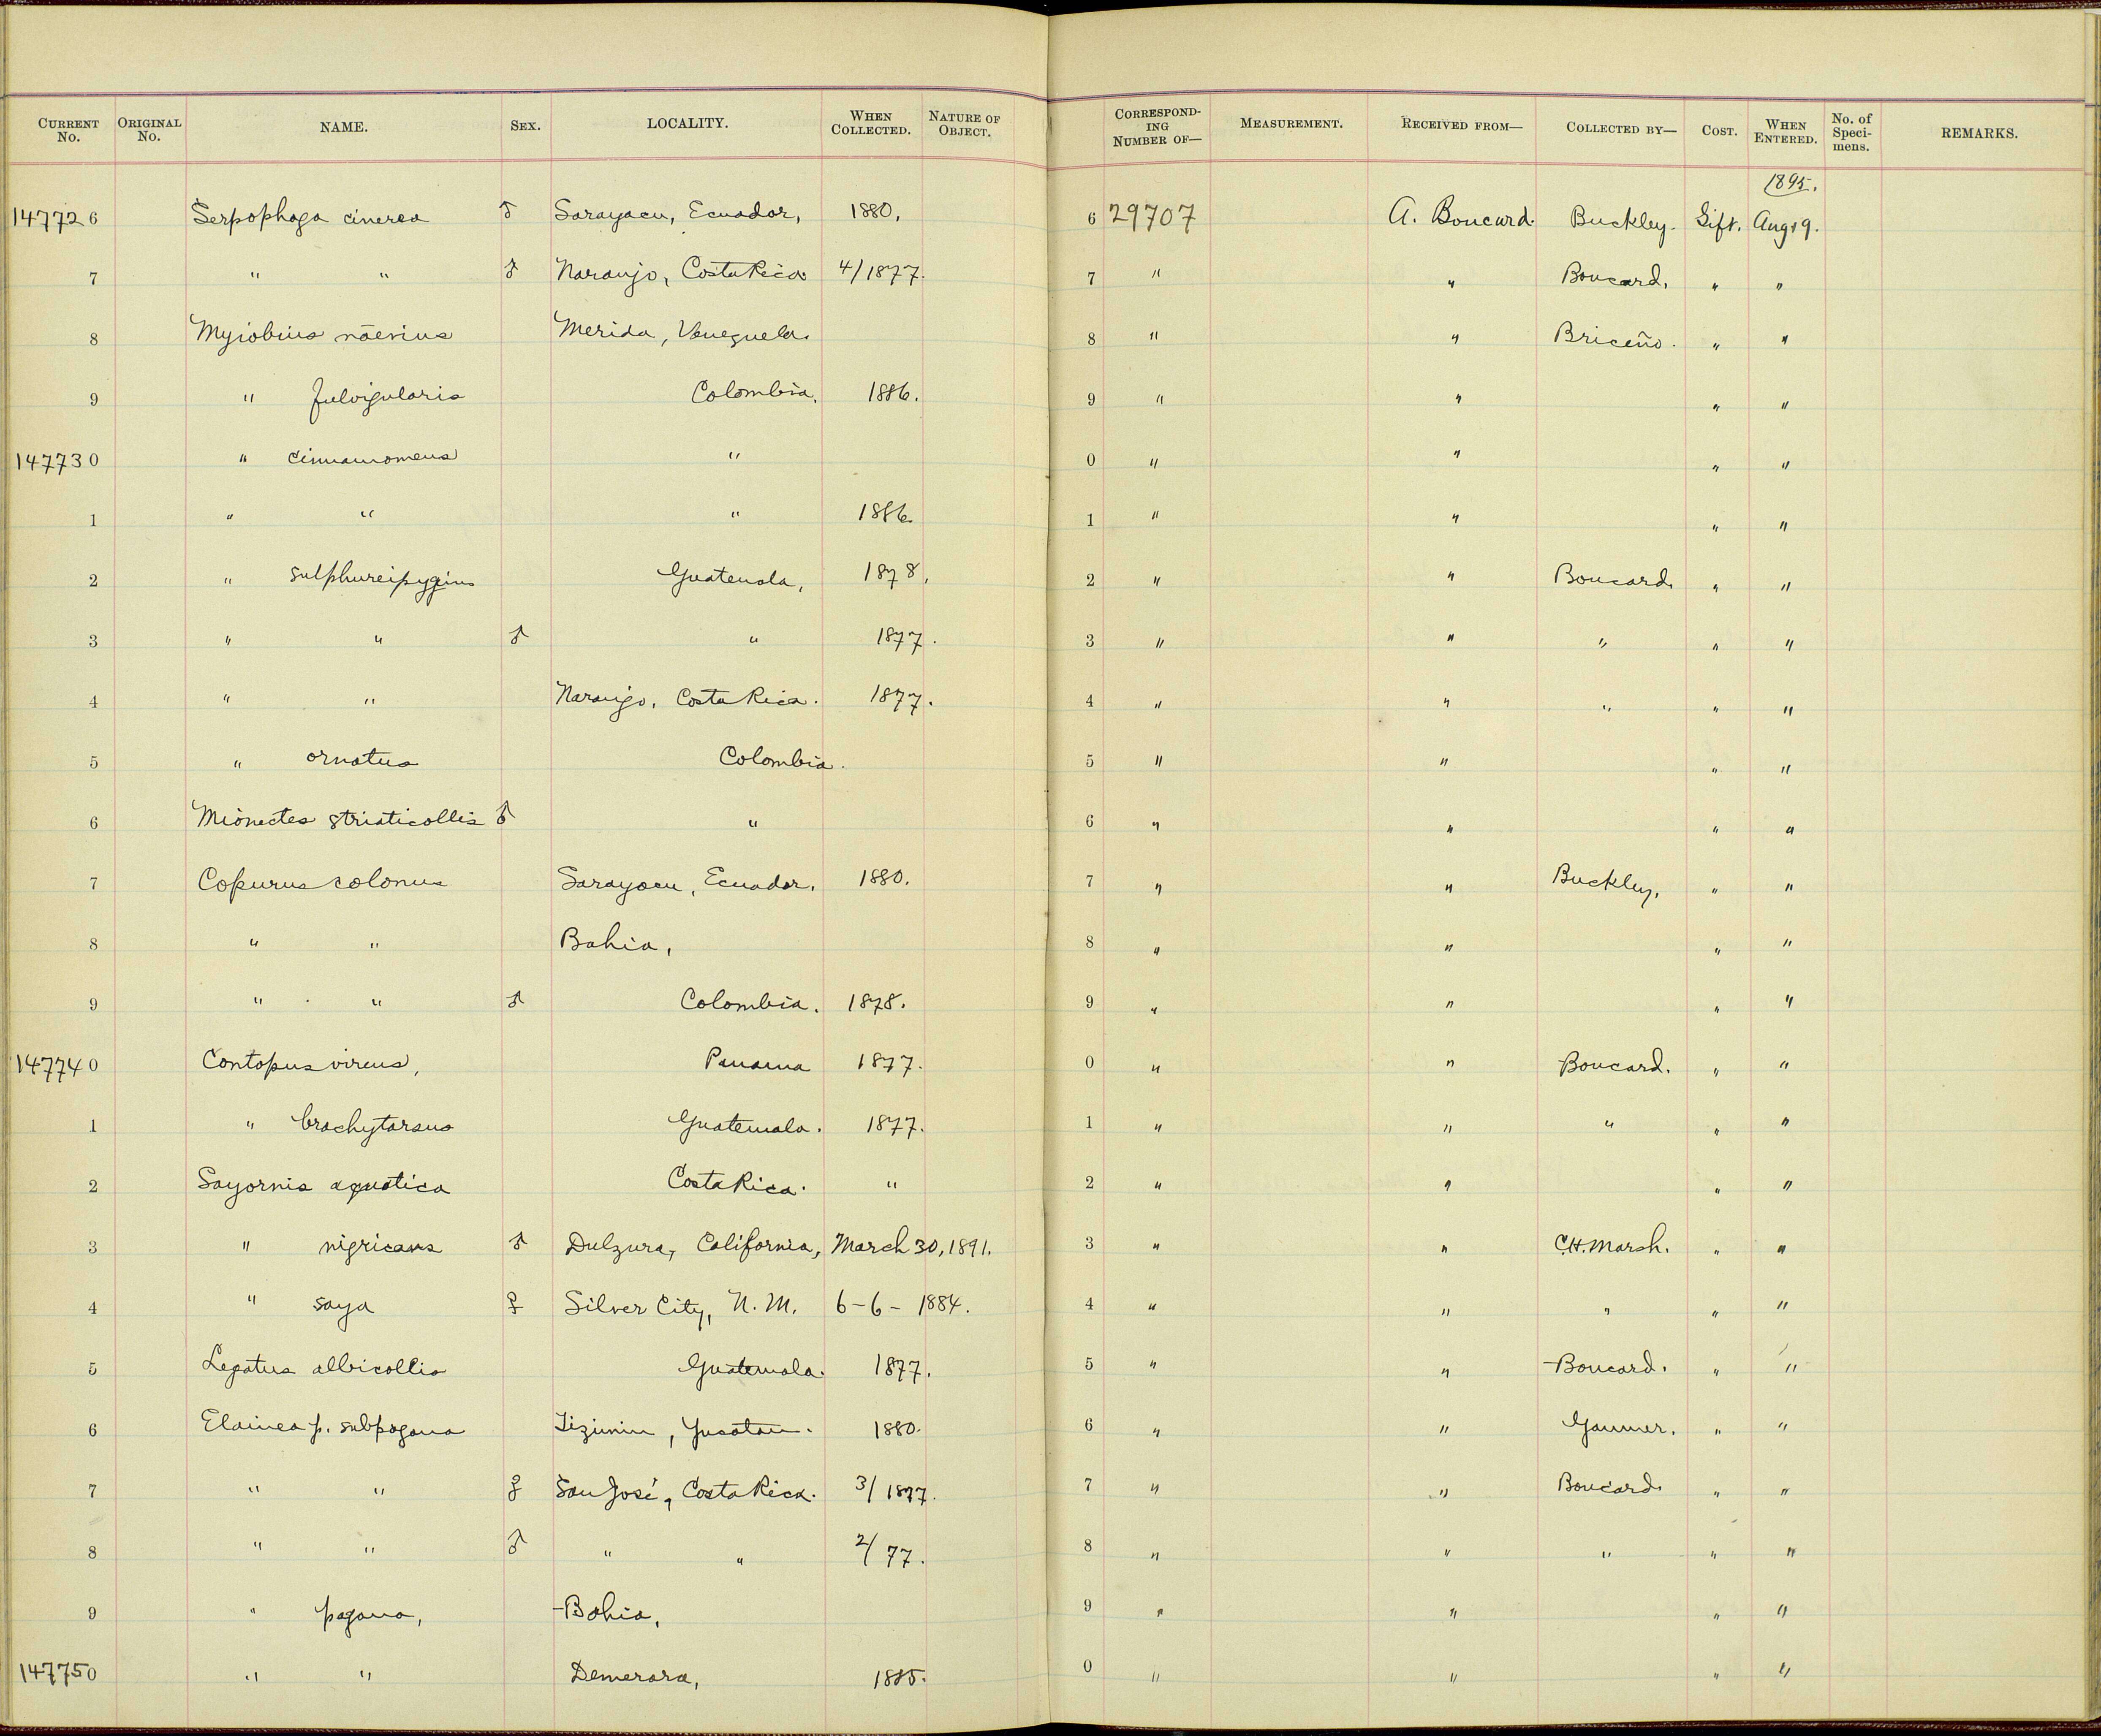 CURRENT No. ORIGINAL No. NAME. SEX. LOCALITY. WHEN COLLECTED. NATURE OF OBJECT. CORRESPONDING NUMBER OF— MEASUREMENT. RECEIVED FROM— COLLECTED BY— COST. WHEN ENTERED. No. of Specimens. REMARKS.
1895.
147726 Serpophaga cinerea ♂ Sarayacu, Ecuador, 1880. 6 29707 A. Boucard. Buckley. Gift. Aug 19.
7 " " ♂ Naranjo, Costa Rica 4/1877. 7 " " Boucard. " "
8 Myiobius nævius Merida, Venezuela. 8 " " Briceño. " "
9 " fulvigularis Colombia. 1886. 9 " " " "
147730 " cinnamomeus " 0 " " " "
1 " " " 1886. 1 " " " "
2 " sulphureipygius Guatemala, 1878. 2 " " Boucard. " "
3 " " ♂ " 1877. 3 " " " " "
4 " " Naranjo, Costa Rica. 1877. 4 " " " " "
5 " ornatus Colombia. 5 " " " "
6 Mionectes striaticollis ♂ " 6 " " " "
7 Copurus colonus Sarayacu, Ecuador. 1880. 7 " " Buckley, " "
8 " " Bahia, 8 " " " "
9 " " ♂ Colombia. 1878. 9 " " " "
147740 Contopus virens, Panama 1877. 0 " " Boucard. " "
1 " brachytarsus Guatemala. 1877. 1 " " " " "
2 Sayornis aquatica Costa Rica. " 2 " " " "
3 " nigricans ♂ Dulzura, California, March 30, 1891. 3 " " C.H. Marsh. " "
4 " saya ♀ Silver City, N. M. 6-6-1884. 4 " " " " "
5 Legatus albicollis Guatemala. 1877. 5 " " Boucard. " "
6 Elainea p. subpagana Tizimin, Yucatan. 1880. 6 " " Gaumer. " "
7 " " ♀ San José, Costa Rica. 3/1877. 7 " " Boucard. " "
8 " " ♂ " " 2/77. 8 " " " " "
9 " pagana, Bahia, 9 " " " "
147750 " " Demerara, 1885. 0 " " " "